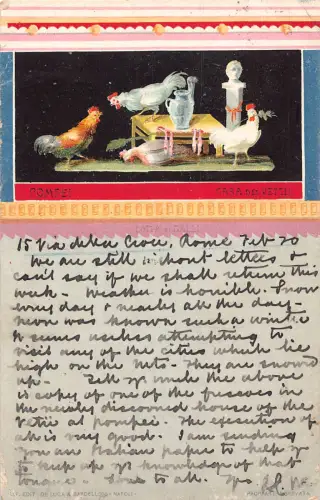 POMPEI
CASA DEI VETTI
15 Via della Croce, Rome Feb 20
We are still without letters &
can't say if we shall return this
week - Weather is horrible. Snow
every day & nearly all the day -
never was known such a winter
It seems useless attempting to
visit any of the cities which lie
high on the Mts - They are snowed
up - Tell yr uncle the above
is copy of one of the frescoes in
the newly discovered house of the
Vettii at Pompeii. The execution of
all is very good. I am sending
you an Italian paper to help yr
to keep up yr knowledge of that
tongue - Love to all. Yrs